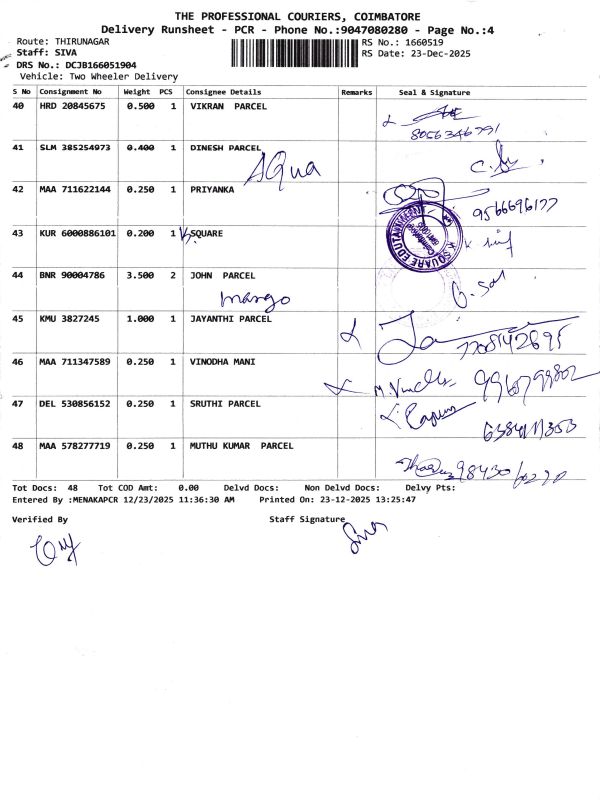 THE PROFESSIONAL COURIERS, COIMBATORE
Delivery Runsheet - PCR - Phone No.:9047080280 - Page No.:4
Route: THIRUNAGAR RS No.: 1660519
Staff: SIVA RS Date: 23-Dec-2025
DRS No.: DCJB166051904
Vehicle: Two Wheeler Delivery
S No Consignment No Weight PCS Consignee Details Remarks Seal & Signature
40 HRD 20845675 0.500 1 VIKRAN PARCEL
8056346791
41 SLM 385254973 0.400 1 DINESH PARCEL
AQua
42 MAA 711622144 0.250 1 PRIYANKA
9566696177
43 KUR 6000886101 0.200 1 K.SQUARE
44 BNR 90004786 3.500 2 JOHN PARCEL
mango
45 KMU 3827245 1.000 1 JAYANTHI PARCEL
7708142695
46 MAA 711347589 0.250 1 VINODHA MANI
47 DEL 530856152 0.250 1 SRUTHI PARCEL
48 MAA 578277719 0.250 1 MUTHU KUMAR PARCEL
Tot Docs: 48 Tot COD Amt: 0.00 Delvd Docs: Non Delvd Docs: Delvy Pts:
Entered By :MENAKAPCR 12/23/2025 11:36:30 AM Printed On: 23-12-2025 13:25:47
Verified By Staff Signature
Siva